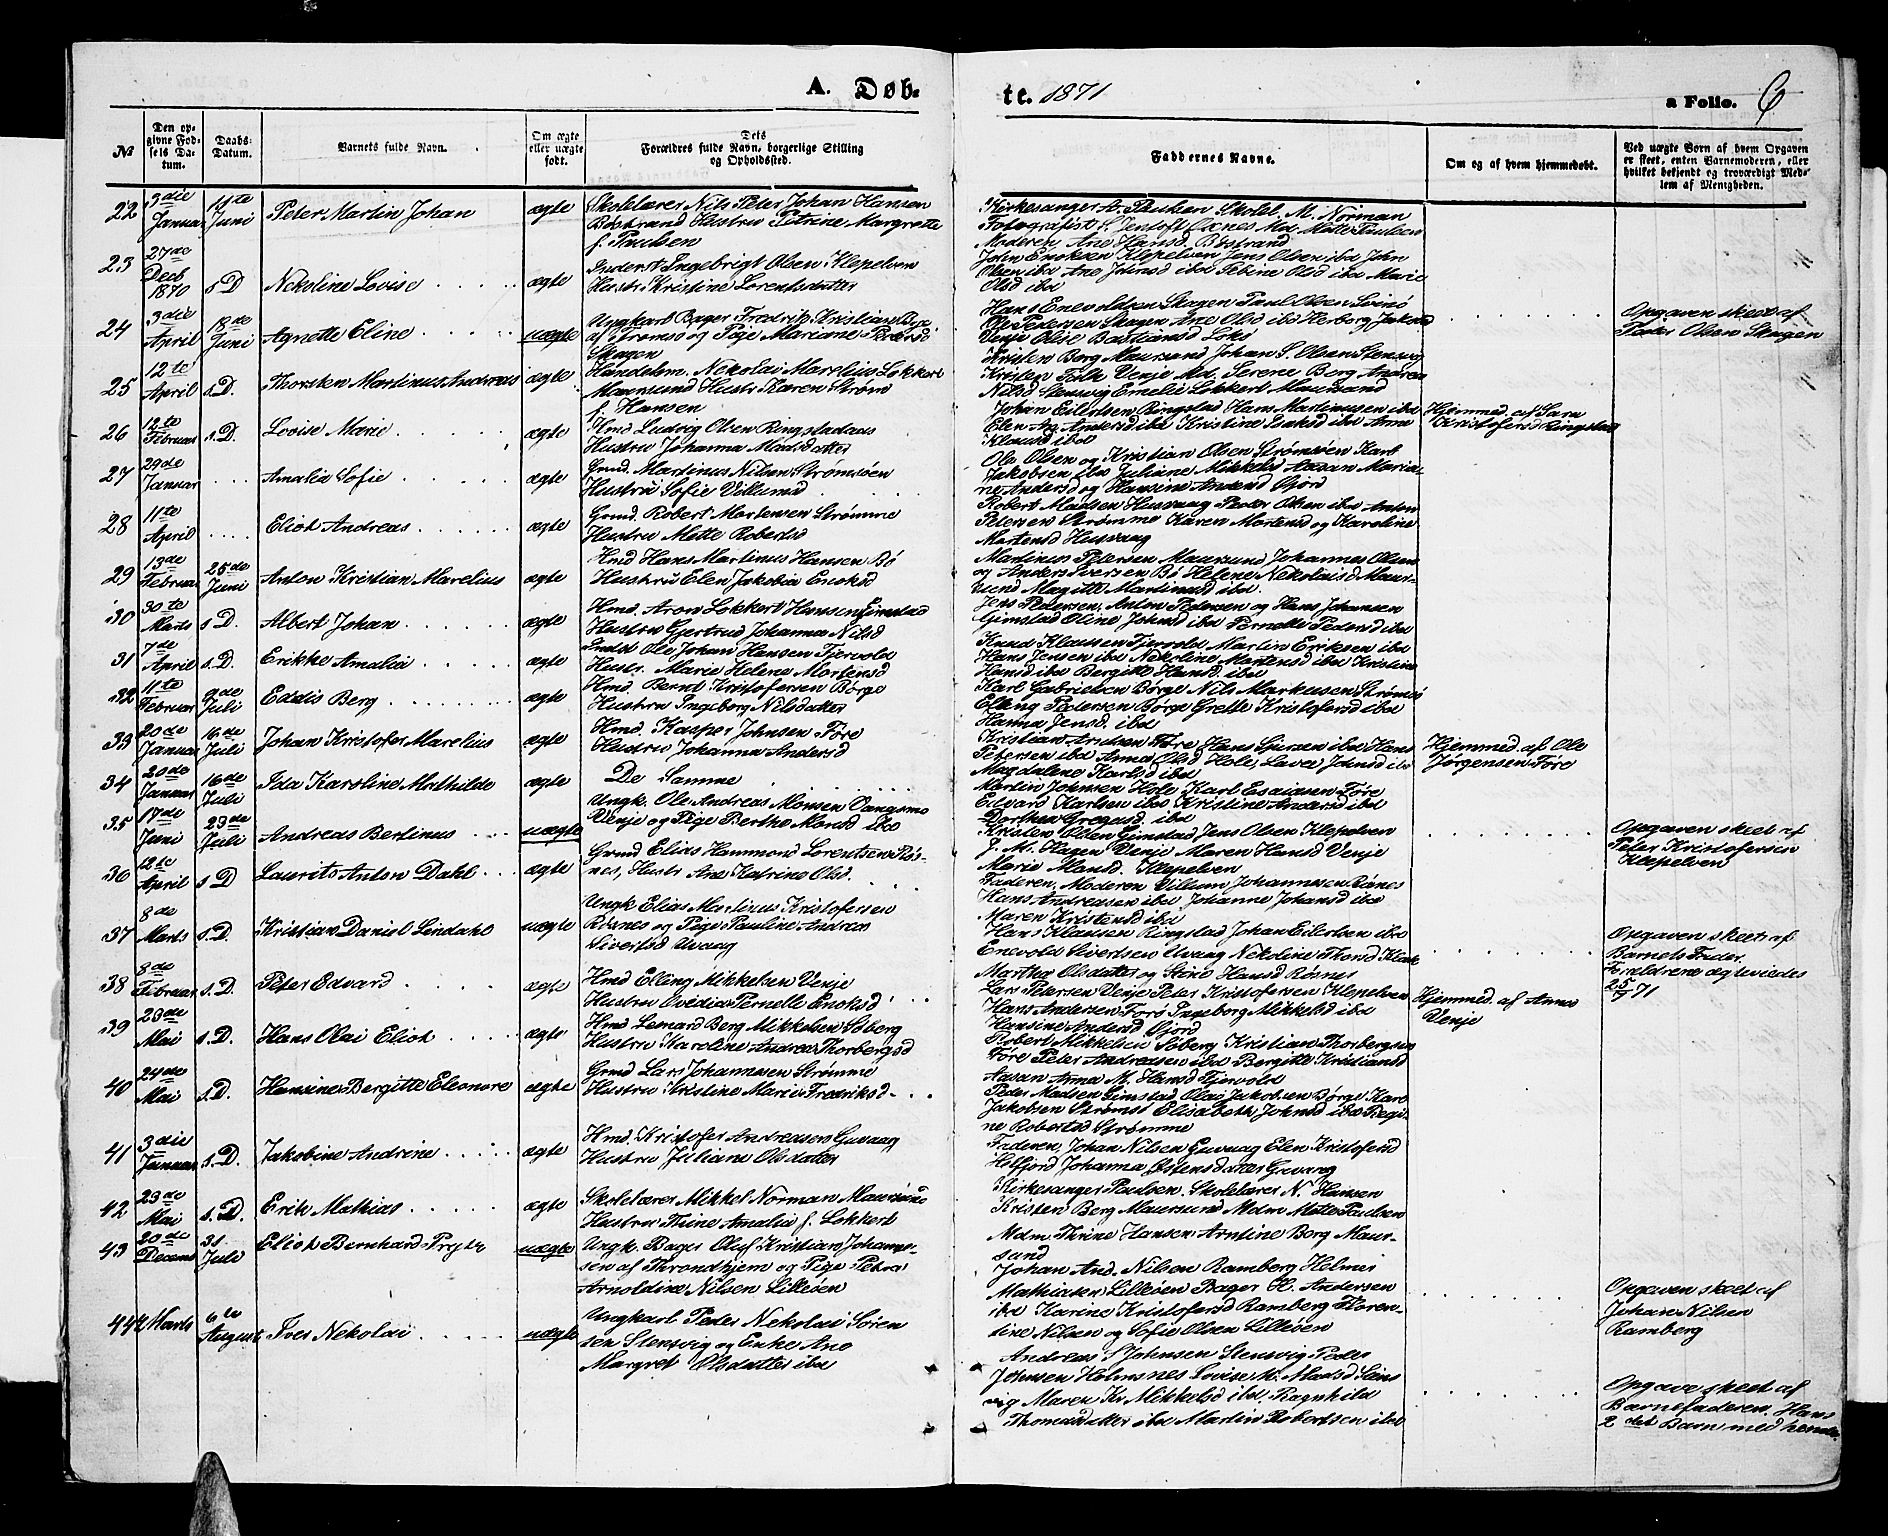 A. Døb-
te. 1871
a Folio. 6
№
Den op-
givne Fød-
sels Da-
tum.
Daabs-
Datum.
Barnets fulde Navn.
Om ægte
eller uægte
født.
Dets
Forældres fulde Navn, borgerlige Stilling
og Opholdssted.
Faddernes Navne.
Om og af hvem hjemmedøbt.
Ved uægte Børn af hvem Opgaven
er skeet, enten Barnemoderen, eller
hvilket bekjendt og troværdigt Med-
lem af Menigheden.
22 3die Januar 11te Juni Peter Martin Johan ægte Skolelærer Nils Peter Johan Hansen
Bøstrand Hustru Petrine Margrette
f. Paulsen
Kirkesanger A. Paulsen Skolel. M. Norman
Fotografist S. Jentoft Oxnes Md. Mette Paulsen
Moderen Ane Hansd. Bøstrand
23 27de Decb 1870 s. D Nekoline Lovise ægte Inderst Ingebrigt Olsen Klepelven
Hustr. Kristine Lorentsdatter
John Enoksen Klepelven Jens Olsen ibd John
Olsen ibd Ane Johnsd ibd Sebine Olsd ibd Marie
Olsd ibd
24 3die April 18de Juni Agnette Eline uægte Ungkarl Bager Fredrik Kristian Bye
af Tromsø og Pige Mariane Pedersd
Skagen
Hans Enevoldsen Skagen Paul Olsen Svinø
Ole Pedersen Skagen Ane Olsd ibd Herborg Jakobsd
Venje Olise Bastiansd Loks
Opgaven skeet af
Peder Olsen Skagen
25 12te April s. D. Thorsten Martinus Andreas ægte Handelsm. Nekolai Marelius Lokkert
Maursund Hustr Karen Strøm
f. Hansen
Kristen Berg Maursund Johan S. Olsen Stensvig
Kristen Falk Venje Md. Serene Berg Andrea
Nilsd Stensvig Emelie Lokkert Maursund
26 12te Februar s. D. Lovise Marie ægte Hmd Ludvig Olsen Ringstadaas
Hustru Johanna Madsdatter
Johan Eilertsen Ringstad Hans Martinusen ibd
Elen An. Andersd ibd Kristine Isaksd ibd Anna
Klausd ibd
Hjemmed. af Sara
Kristofersd Ringstad
27 29de Januar Amalia Sofie ægte Grmd. Martinus Nilsen Strømsøen
Hustru Sofie Villumsd
Ole Olsen og Kristian Olsen Strømsøen Karl
Jakobsen ibd Juliane Mikkelsd Aasan Maria-
ne Andersd og Hansine Andersd Gjord
28 11te April Eliot Andreas ægte Grmd. Robert Mortensen Strømme
Hustru Mette Robertsd
Robert Madsen Husvaag Peder Olsen ibd Anton
Petersen Strømme Karen Mortensd og Karoline
Mortensd Husvaag
29 13de Februar 25de Juni Anton Kristian Marelius ægte Hmd Hans Martinus Hansen Bø
Hustru Elen Jakobia Enoksd
Martinus Petersen Maursund Johannes Olsen
og Anders Iversen Bø Helene Nekolaisd Maur-
sund Magitte Martinusd ibd.
30 30te Marts s. D. Albert Johan ægte Hmd. Aron Lokkert Hansen Gimstad
Hustru Gjertrud Johanna Nilsd
Jens Pedersen, Anton Pedersen og Hans Johansen
Gimstad Oline Johnsd ibd Pernelle Pedersd ibd
31 7de April s. D. Erikke Amalia ægte Indst Ole Johan Hansen Fjervold
Hustr. Marie Helene Mortensd
Knud Klaussen Fjervold Martin Eriksen ibd
Hans Jensen ibd Nekoline Mortensd ibd Kristine
Hansd ibd Bergitte Hansd. ibd
32 11te Februar 9de Juli Eddis Berg ægte Hmd. Bernt Kristofersen Børge
Hustru Ingeborg Nilsdatter
Karl Gabrielsen Børge Nils Markusen Strømsø
Elling Pedersen Børge Grette Kristofersd ibd
Hanna Jensd. ibd
33 20de Januar 16de Juli Johan Kristofer Marelius ægte Hmd. Kasper Johnsen Føre
Hustru Johanna Andersd
Kristian Arntsen Føre Hans Sjursen ibd Hans
Petersen ibd Anna Olsd Hole, Lava Johnsd ibd
Magdalene Karlsd ibd
Hjemmed. af Ole
Jørgensen Føre
34 20de Januar 16de Juli Ida Karoline Mathilde ægte De Samme
Martin Johnsen Hole Karl Esaiassen Føre
Edvard Karlsen ibd Kristine Andersd ibd
Dorthea Gregusd. ibd
35 17de Juni 23de Juli Andreas Bertinus uægte Ungk. Ole Andreas Monsen Vangsmo
Venje og Pige Berthe Monsd ibd
Kristen Olsen Gimstad Jens Olsen Klepelven
J. M. Hagen Venje Maren Hansd Venje
Marie Mansd. Klepelven
Opgaven skeet af
Peter Kristofersen
Klepelven
36 12te April s. D Laurits Anton Dahl ægte Grmd Elias Hammond Lorentsen Røs-
nes, Hustr Ane Katrine Olsd.
Faderen, Moderen Villum Johannesen Rísnes
Hans Andreassen ibd Johanne Johansd ibd
Maren Kristensd ibd
37 8de Marts s. D. Kristian Daniel Lindahl uægte Ungk Elias Martinus Kristofersen
Røsnes og Pige Pauline Andrea
Sivertsd Uvaag
Hans Klaussen Ringstad Johan Eilertsen ibd
Enevold Sivertsen Uvaag Nekoline Thorsd
Marthe Olsdatter og Stine Hansd Røsnes
Opgaven skeet af
Barnets Fader.
Forældrene ægteviedes
25/9 71
38 8de Februar s. D. Peter Edvard ægte Hmd Elling Mikkelsen Venje
Hustru Ovedia Pernelle Enoksd
Lars Petersen Venje Peter Kristofersen Klepelven
Hans Andersen Føre Ingeborg Mikkelsd ibd
Hansine Andersd Gjord
Hjemmed. af Anna
Venje
39 23de Mai s. D. Hans Olai Eliot ægte Hmd Leonard Berg Mikkelsen Søberg
Hustru Karoline Andrea Thorbergsd
Robert Mikkelsen Søberg Kristian Thorbergsen
Føre Peter Andreasen ibd Bergitte Kristiansd
Aasan Anna M. Hansd Fjervold
40 24de Mai s. D. Hansine Bergitte Eleonore ægte Grmd Lars Johannesen Strømme
Hustru Kristine Marie Fredriksd
Peder Madsen Gimstad Olai Jakobsen Børge Karl
Jakobsen Strømsø Elisabeth Johnsd ibd Regi-
ne Robertsd Strømme
41 3die Januar s. D. Jakobine Andrine ægte Hmd. Kristofer Andreassen Guvaag
Hustru Juliane Olsdatter
Faderen, Johan Nilsen Guvaag Elen Kristofersd
Helfjord Johanna Østensdatter Guvaag
42 23de Mai s. D. Erik Mathias ægte Skolelærer Mikkel Norman Maursund
Hustru Trine Amalia f. Lokkert
Kirkesanger Paulsen. Skolelærer N. Hansen
Kristen Berg Maursund Mdm Mette Paulsen
Mdm Thrine Hansen, Arntine Berg Maur-
sund
43 20de Decemb 31 Juli Eliot Bernhard uægte Ungk. Bager Oluf Kristian Johanne-
sen af Throndhjem og Pige Petra
Arnoldine Nilsen Lilleøen
Johan And. Nilsen Ramberg Helmer
Mathiasen Lilleøen Bager H. Andersen
ibd Karine Kristofersd Ramberg Floren-
tine Nilsen og Sofie Olsen Lilleøen
Opgaven skeet af
Johan Nilsen
Ramberg
44 Marts 6te August Iver Nekolai uægte Ungkarl Peder Nekolai Søren
sen Stensvig og Enke Ane
Margret Olsdatter ibd
Andreas S Johnsen Stensvig Peder
Johnsen Holmsnes Lovise M. Madsd Stens
vig Maren Kr Mikkelsd ibd. Ragnhild
Thomasdatter ibd Martin Robertsen ibd
Opgave skeet af
Barnefaderen. Hans
2det Barn med hende.